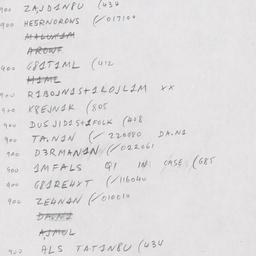 900 ZAJD1N8U (434
900 HE5RNOROWS (✓017100
M1LUK1M
AROWF
400 G81T1ML (412
M1ML
900 R1BOJN1S+1LOJL1M XX
900 KREJN1K (805
900 DUSJID1S+1FOLK (408
900 TA.N1N (✓220080 DA.N1
900 D3RMAN1N (✓022061
900 1MFALS Q1 IN CASE (G8T
900 G81RE4XT (✓116040
900 ZE4N1N (✓010010
DA.N1
AJMOL
900 ALS TAT1N8U (434